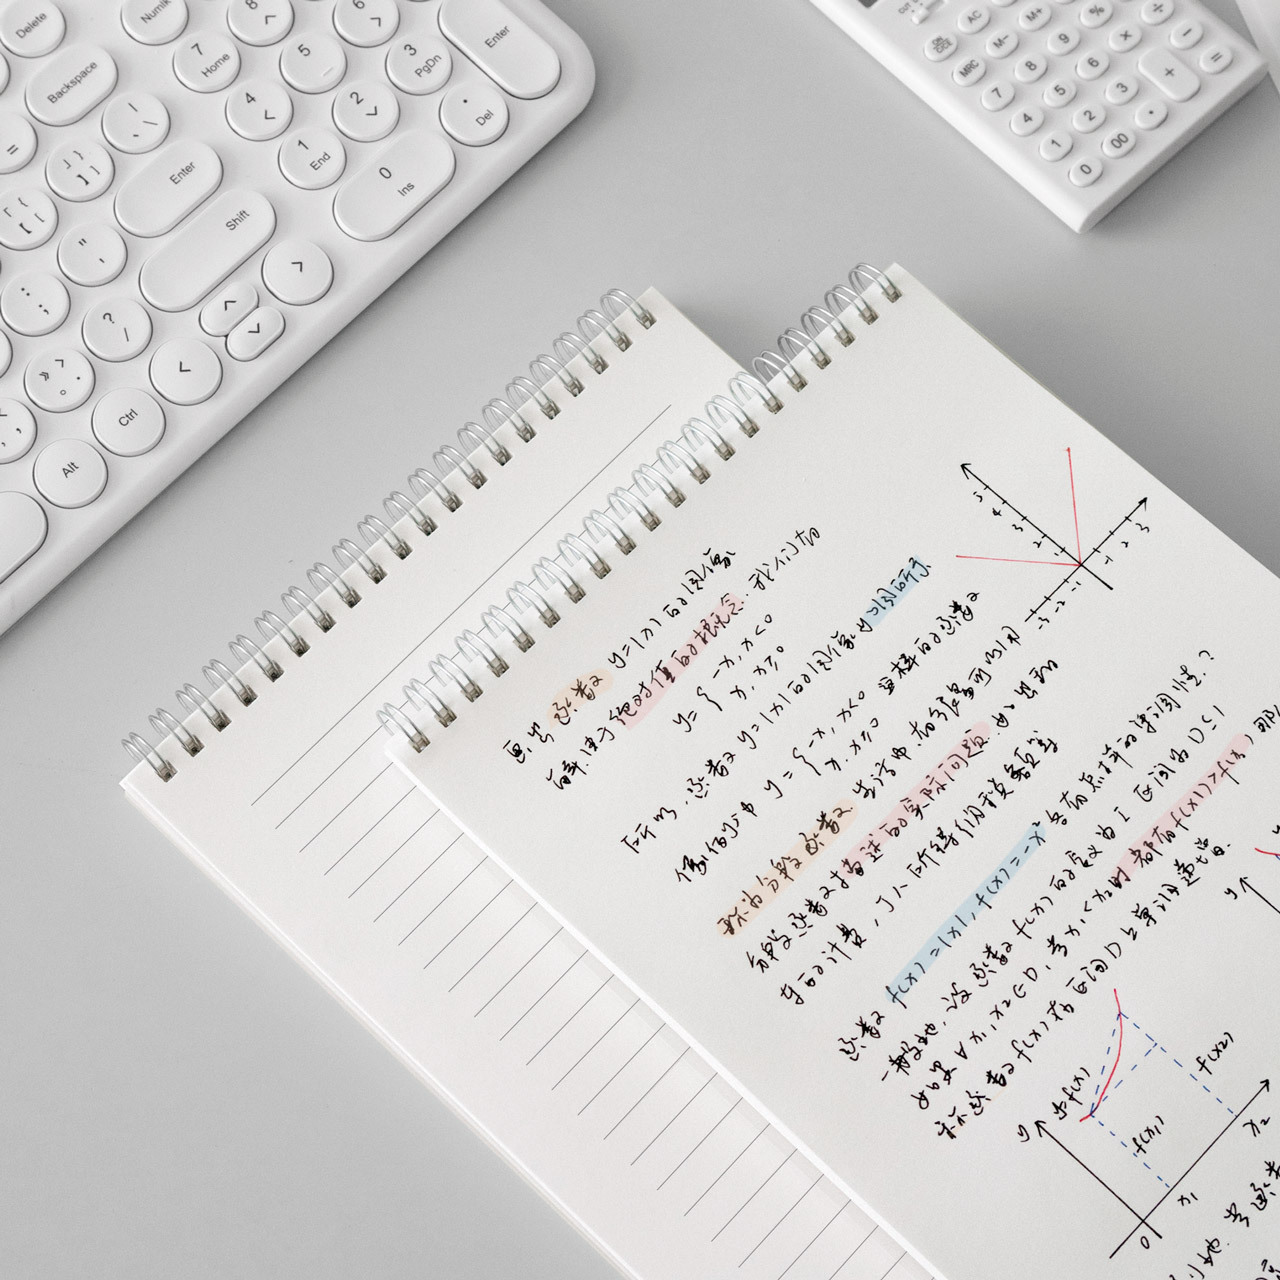 Delete
Numlk
8
6
Enter
Backspace
7
Home
5
3
PgDn
4
2
.
Del
=
Enter
1
End
0
Ins
Shift
Ctrl
Alt
AC
M+
%
÷
M-
9
×
-
MRC
8
6
+
=
7
5
3
4
2
.
1
00
0
画出函数 y=|x| 的图像
解:由于绝对值的概念,我们有
y={-x, x<0
x, x≥0
所以,函数 y=|x| 的图像如图所示
像 y={-x, x<0 这样的函数
x, x≥0
称为分段函数
生活中,有很多可以用
分段函数
的实际问题,如出租
车的计费,个人所得税纳税额等
函数 f(x)=|x|, f(x)=-x² 各有怎样的单调性?
一般地,设函数 f(x) 的定义为 I 区间 D⊆I
如果 ∀x₁,x₂∈D,当 x₁<x₂ 时 都有 f(x₁)>f(x₂),那
称函数 f(x) 在区间 D 上单调递增.
5
4
3
2
1
-3 -2 -1
1
2
3
y
y=f(x)
f(x₁)
f(x₂)
0
x₁
x₂
y